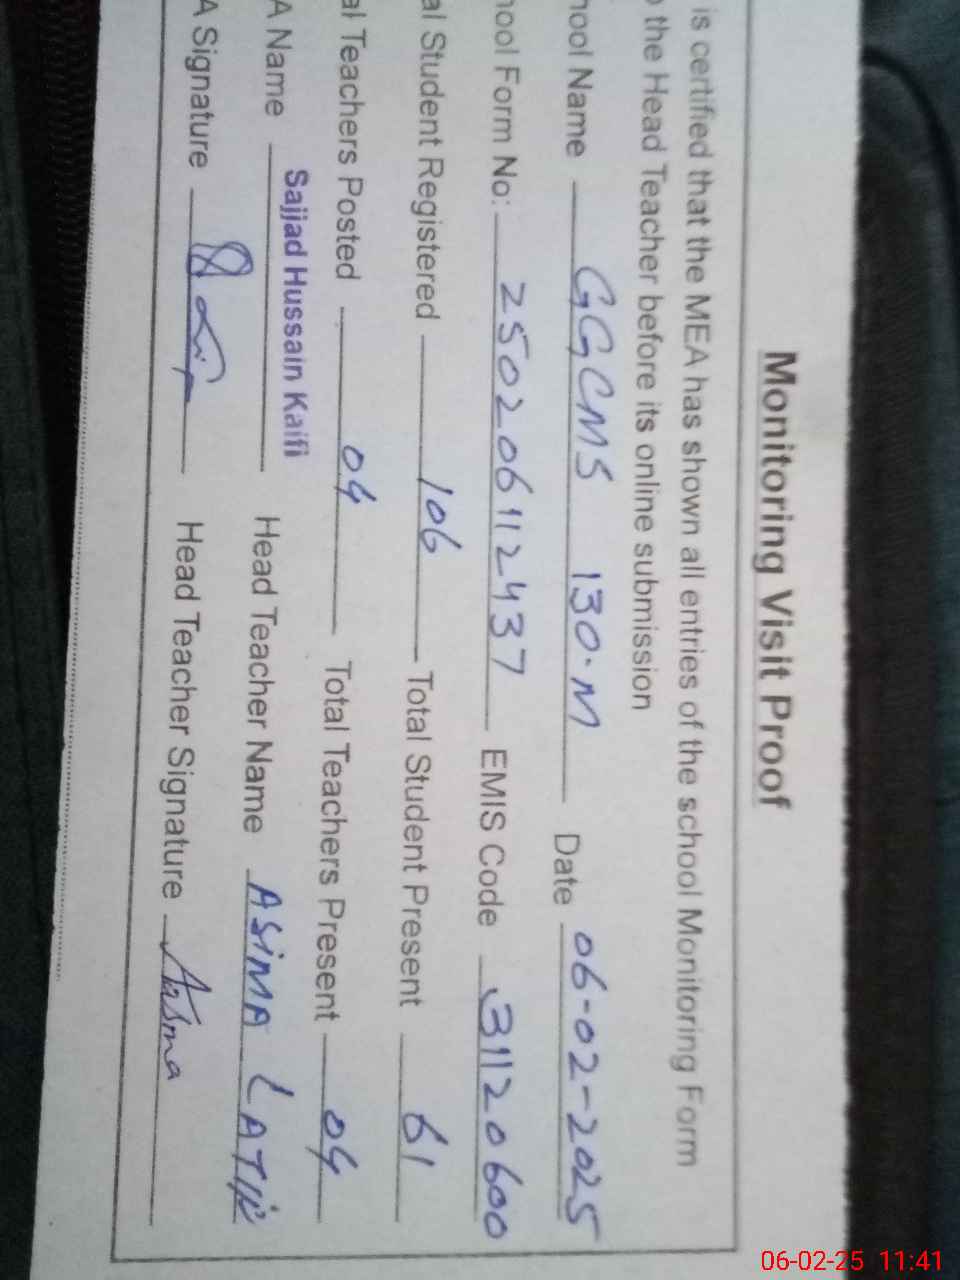 Monitoring Visit Proof
is certified that the MEA has shown all entries of the school Monitoring Form
the Head Teacher before its online submission
hool Name GGCMS 130.M Date 06-02-2025
hool Form No: 2502061124 37 EMIS Code 31120600
al Student Registered 106 Total Student Present 61
al Teachers Posted 04 Total Teachers Present 04
A Name Sajjad Hussain Kaifi Head Teacher Name ASIMA LATIF
A Signature Head Teacher Signature Aasma
06-02-25 11:41